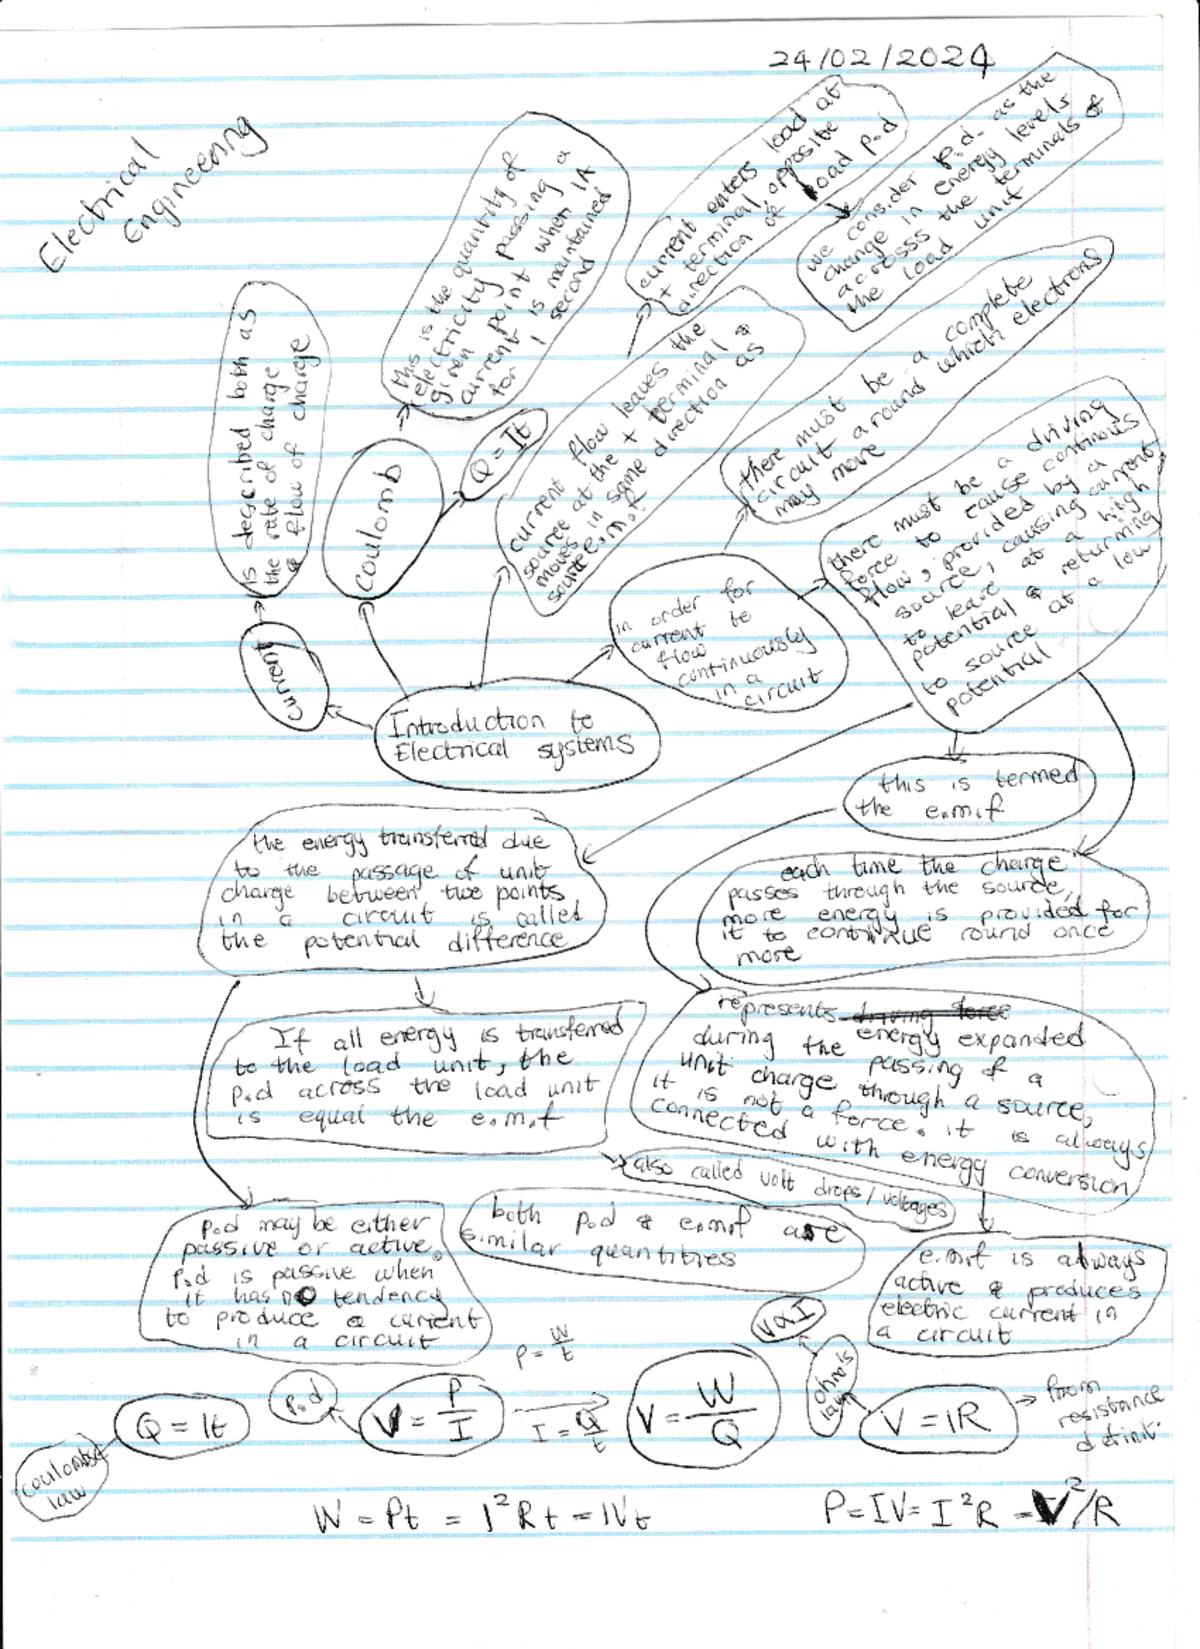 24/02/2024
Electrical
Engineering
is described both as
the rate of charge
& flow of charge
this is the quantity of
electricity passing a
given point when 1A
current is maintained
for 1 second
current enters load at
+ terminal, opposite
direction of load p.d
we consider p.d. as the
change in energy levels
acrosss the terminals of
the load unit
coulomb
Q = It
current flow leaves the
source at the + terminal &
moves in same direction as
source e.m.f
there must be a complete
circuit around which electrons
may more
there must be a driving
force to cause continous
flow, provided by a
source, causing current
to leave at a high
potential & returning
to source at a low
potential
in order for
current to
flow
continuously
in a
circuit
current
Introduction to
Electrical systems
this is termed
the e.m.f
the energy transferred due
to the passage of unit
charge between two points
in a circuit is called
the potential difference
each time the charge
passes through the source,
more energy is provided for
it to continue round once
more
If all energy is transferred
to the load unit, the
p.d across the load unit
is equal the e.m.f
represents driving force
during the energy expanded
unit charge passing of a
it is not a force through a source,
connected with energy conversion
it is always
also called volt drops/voltages
p.d may be either
passive or active.
p.d is passive when
it has no tendency
to produce a current
in a circuit
both p.d & e.m.f are
similar quantities
e.m.f is always
active & produces
electric current in
a circuit
P = W/t
V∝I
Q = It
p.d
V = P/I
I = Q/t
V = W/Q
ohm's
law
V = IR
from
resistance
definit.
coulombs
law
W = Pt = I²Rt = IVt
P = IV = I²R = V²/R